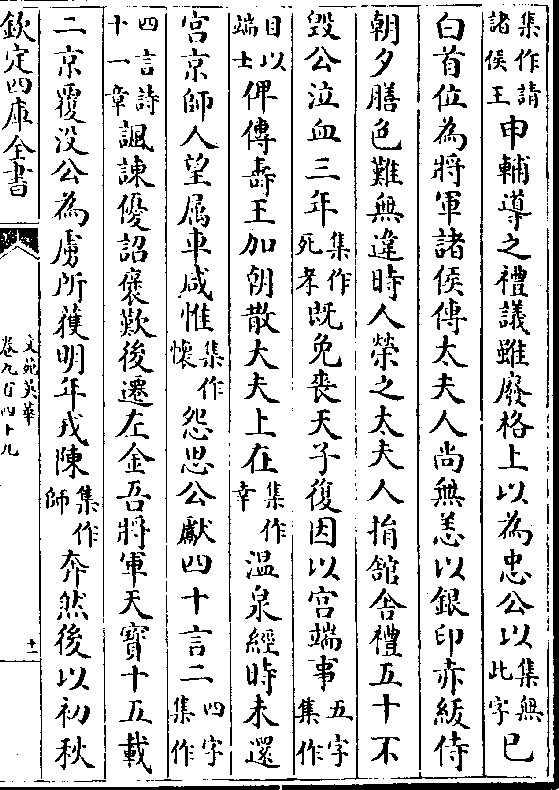 集作請諸侯王申輔導之禮議雖廢格上以為忠公以集無此字已
白首位為將軍諸侯傅太夫人尚無恙以銀印亦紱侍
朝夕膳色難無違時人榮之太夫人捐館舍禮五十不
毀公泣血三年集作死孝既免喪天子復因以宮端事五字集作
目以端士俾傅壽王加朝散大夫上在集作幸温泉經時未還
宮京師人望属車咸惟集作懷怨思公獻四十言二四字集作
四言詩十一章諷諫優詔褒歎後遷左金吾將軍天寶十五載
二京覆没公為虜所獲明年戎陳集作師奔然後以初秋
欽定四庫全書
文苑英華
卷九百四十九
十一